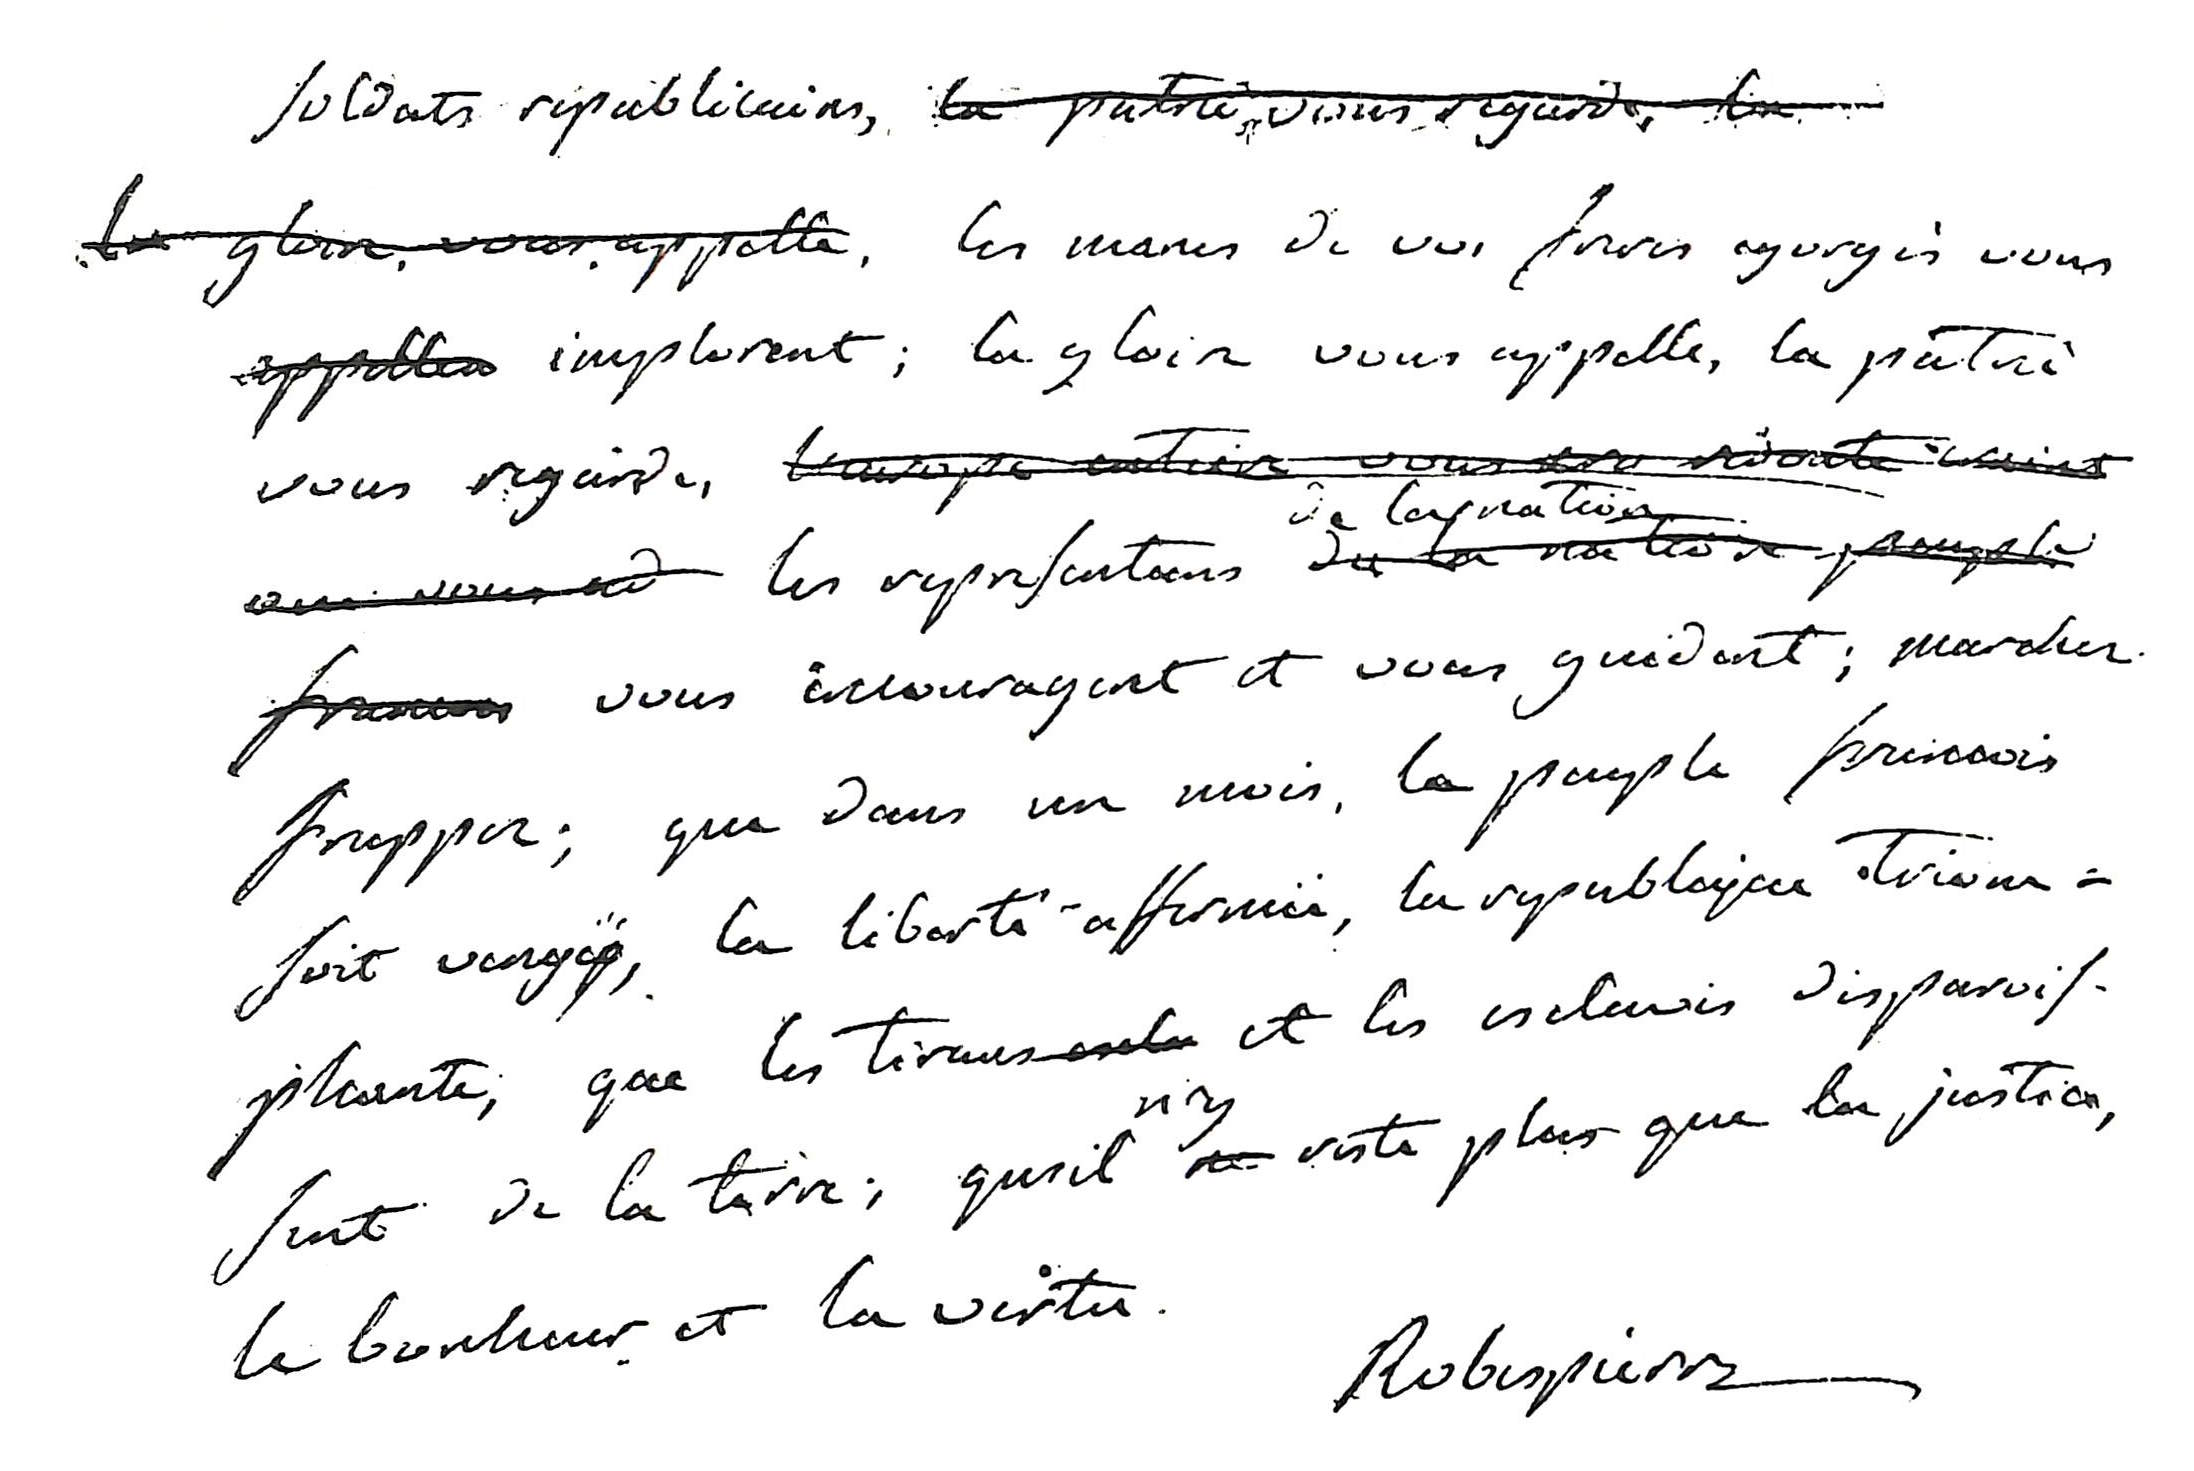 soldats republicains, la patrie vous regarde, la
la gloire vous appelle, les manes de vos freres egorgés vous
appellen implorent; la gloire vous appelle, la patrie
vous regarde, l'europe entiere vous
de la nation
les representans de la nation peuple
francois vous encouragent et vous guident; marchez
frappez; que dans un mois, le peuple francois
soit vengé, la liberté affermie, la republique triom=
phante, que les tirans et les esclaves disparois-
n'y
sent de la terre; qu'il ne reste plus que la justice,
le bonheur et la vertu.
Robespierre